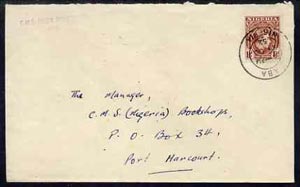 NIGERIA
ABA
The Manager,
C.M.S. (Nigeria) Bookshops,
P. O. Box 34,
Port Harcourt.